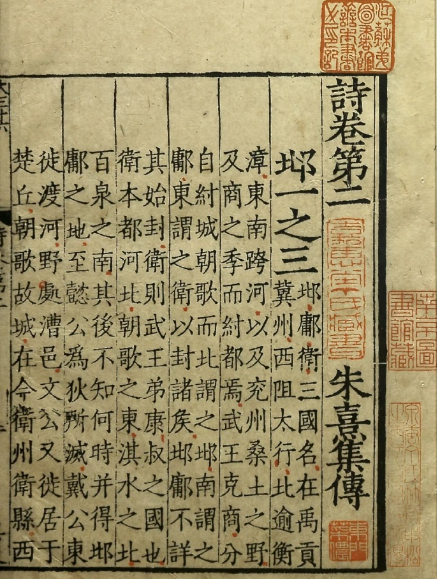 詩卷第二
朱熹集傳
邶一之三
邶鄘衞三國名在禹貢
冀州西阻太行北逾衡
漳東南跨河以及兗州桑土之野
及商之季而紂都焉武王克商分
自紂城朝歌而北謂之邶南謂之
鄘東謂之衞以封諸侯邶鄘不詳
其始封衞則武王弟康叔之國也
衞本都河北朝歌之東淇水之北
百泉之南其後不知何時并得邶
鄘之地至懿公爲狄所滅戴公東
徙渡河野處漕邑文公又徙居于
楚丘朝歌故城在今衞州衞縣西